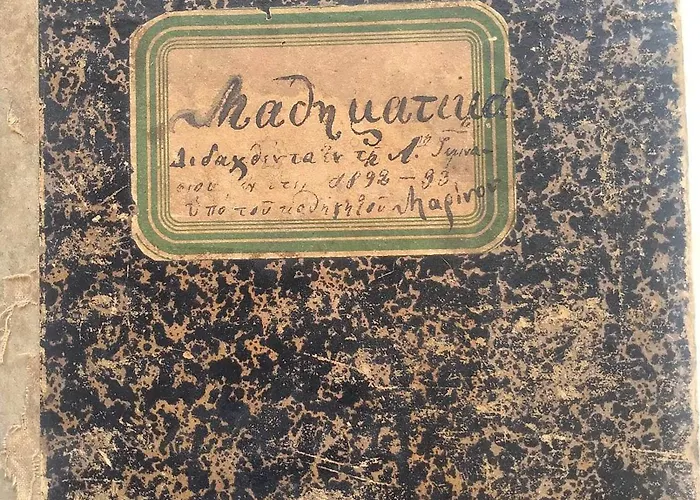 Μαθηματικά
Διδαχθέντα ἐν τῷ Λῳ Γυμνα-
σίου ἐν ἔτει 1892-93
ὑπὸ τοῦ καθηγητοῦ Μαρίνου